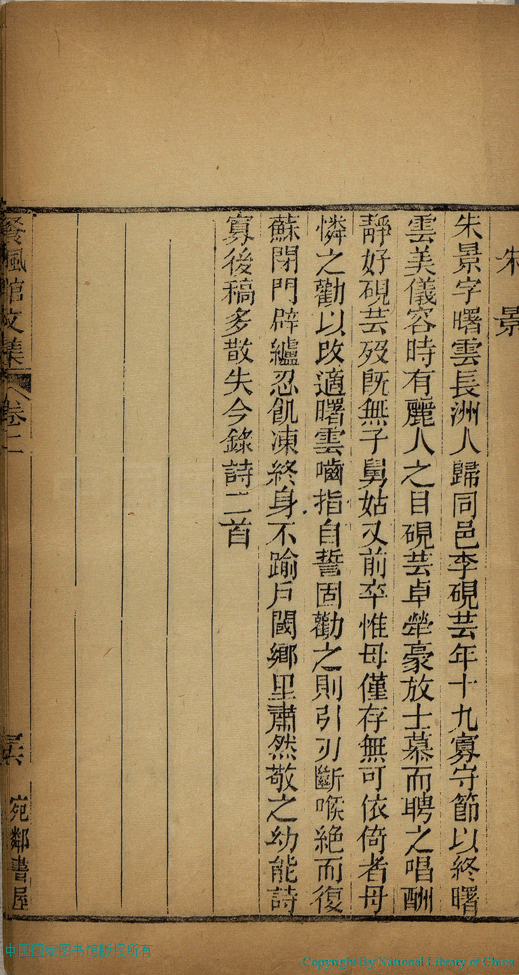 朱景
朱景字曙雲長洲人歸同邑李硯芸年十九寡守節以終曙
雲美儀容時有麗人之目硯芸卓犖豪放士慕而聘之唱酬
靜好硯芸歿旣無子舅姑又前卒惟母僅存無可依倚者母
憐之勸以改適曙雲嚙指自誓固勸之則引刀斷喉絶而復
蘇閉門辟纑忍飢凍終身不踰戶閾鄉里肅然敬之幼能詩
寡後稿多散失今錄詩二首
餐楓館文集 卷二
宛鄰書屋
中国国家图书馆版权所有
Copyright By National Library of China